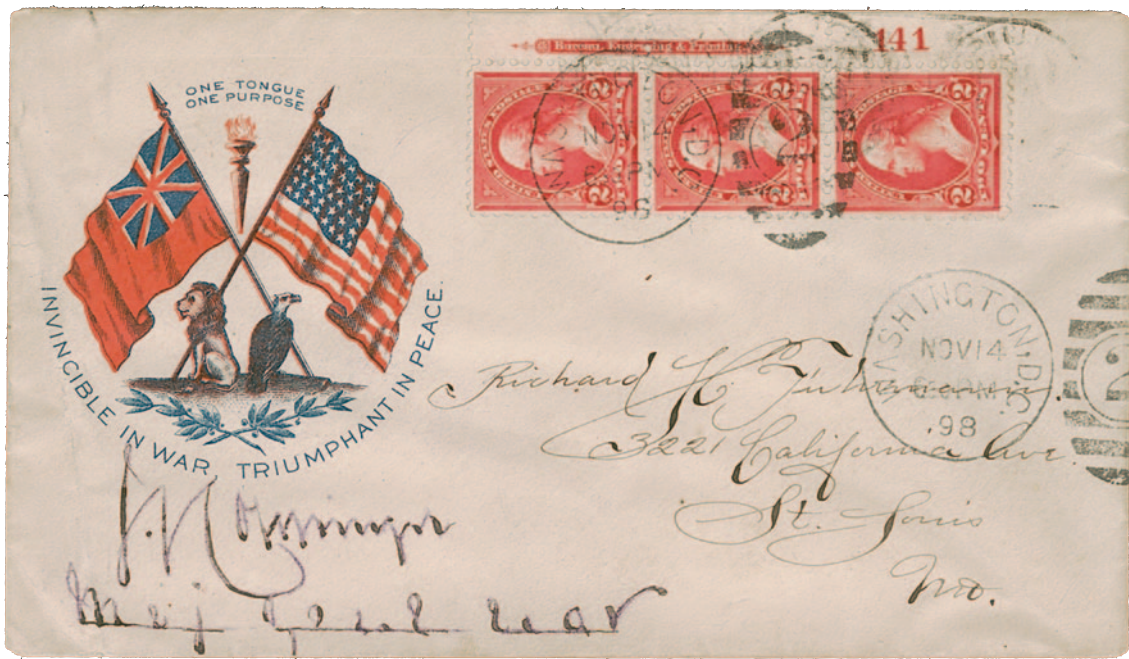 ONE TONGUE
ONE PURPOSE
INVINCIBLE IN WAR, TRIUMPHANT IN PEACE.
Bureau, Engraving & Printing
141
WASHINGTON, D.C.
NOV 14
98
WASHINGTON, D.C.
NOV 14
98
2
Richard H.
3221 California Ave
St. Louis
Mo.
Maj